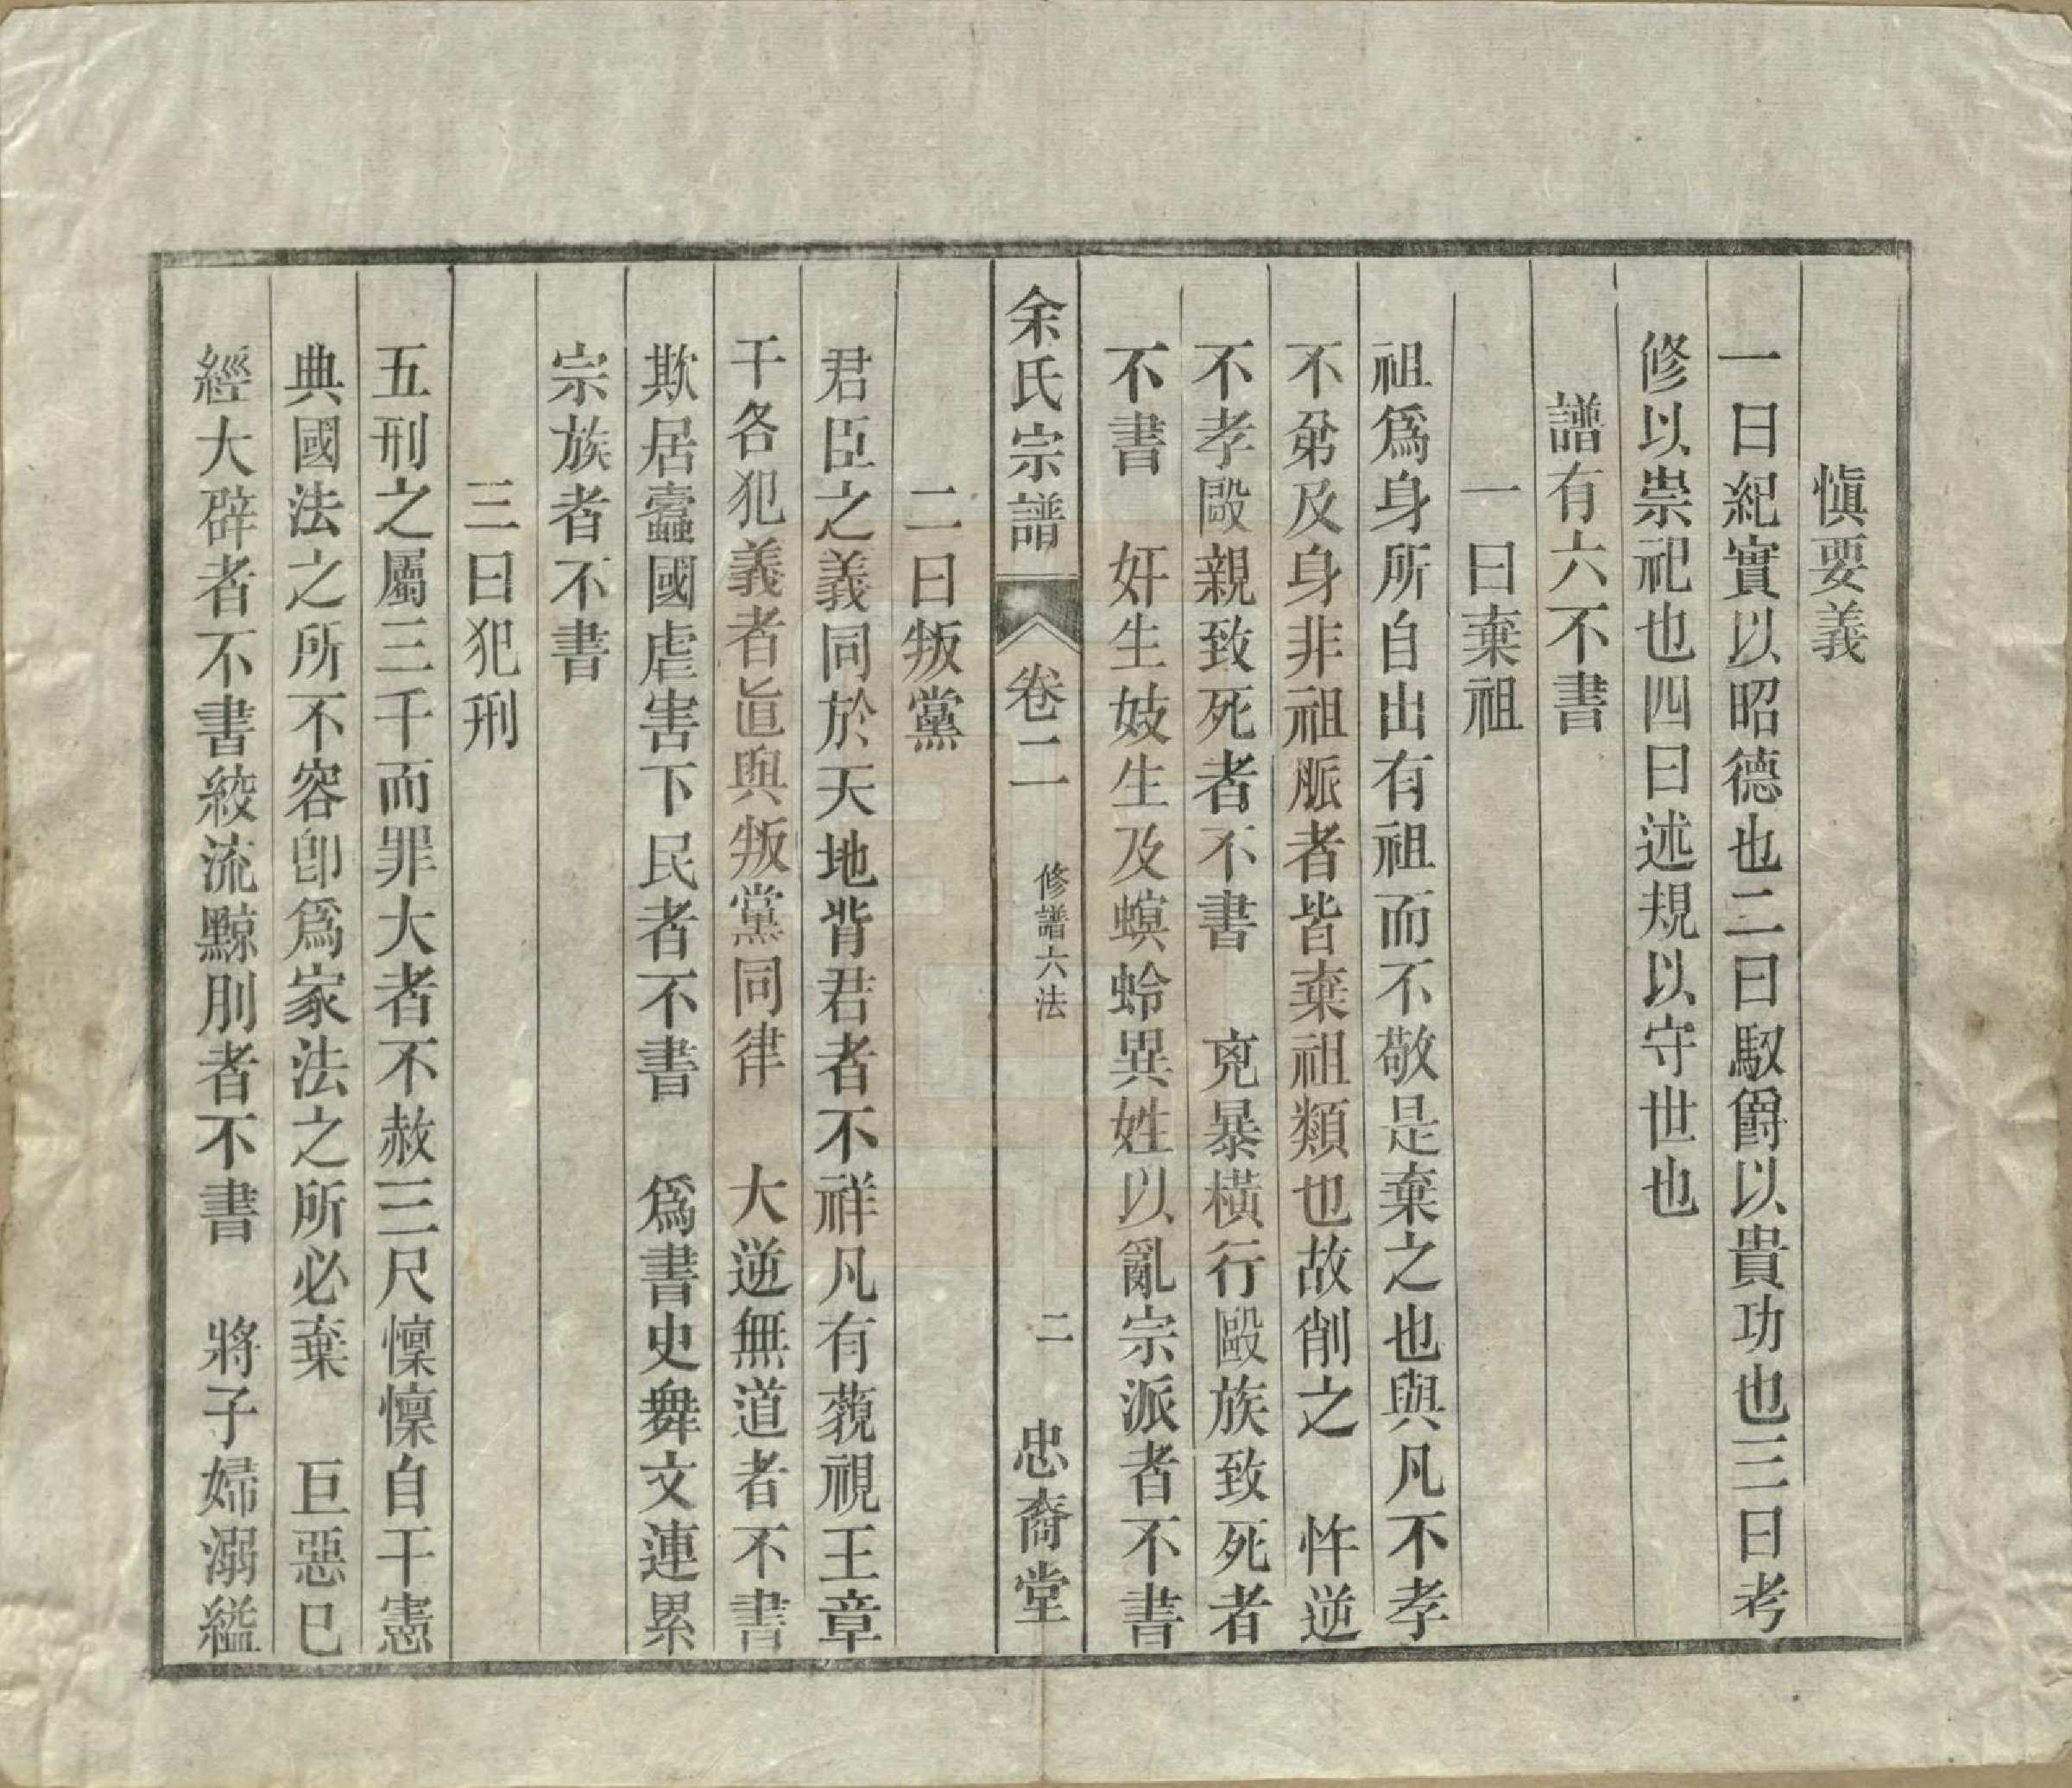 愼要義
一曰紀實以昭德也二曰馭爵以貴功也三曰考
修以崇祀也四曰述規以守世也
譜有六不書
一曰棄祖
祖爲身所自出有祖而不敬是棄之也與凡不孝
不弟及身非祖脈者皆棄祖類也故削之　忤逆
不孝毆親致死者不書　兇暴橫行毆族致死者
不書　奸生妓生及螟蛉異姓以亂宗派者不書
余氏宗譜　卷二　修譜六法　二　忠裔堂
二曰叛黨
君臣之義同於天地背君者不祥凡有藐視王章
干各犯義者㫖與叛黨同律　大逆無道者不書
欺居蠹國虐害下民者不書　爲書史舞文連累
宗族者不書
三曰犯刑
五刑之屬三千而罪大者不赦三尺懍懍自干憲
典國法之所不容卽爲家法之所必棄　巨惡巳
經大辟者不書絞流黥刖者不書　將子婦溺縊